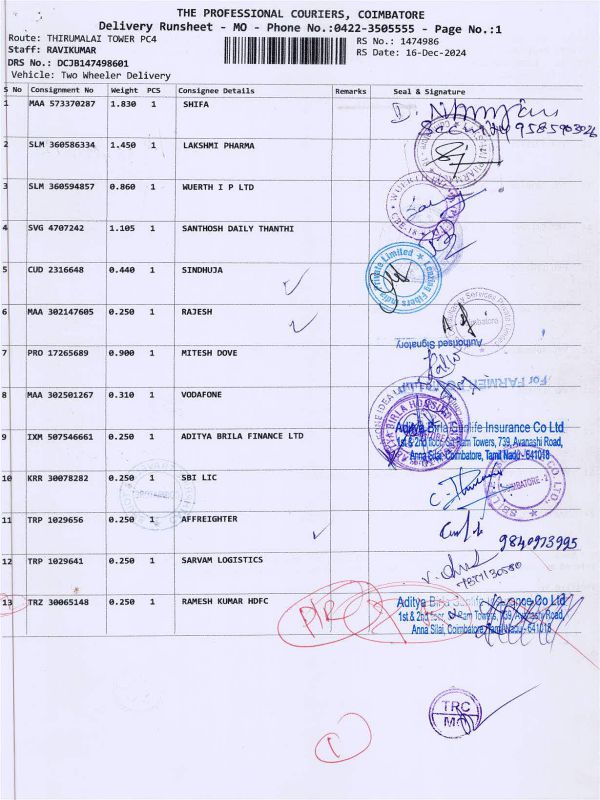 THE PROFESSIONAL COURIERS, COIMBATORE
Delivery Runsheet - MO - Phone No.:0422-3505555 - Page No.:1
Route: THIRUMALAI TOWER PC4
Staff: RAVIKUMAR
RS No.: 1474986
DRS No.: DCJB147498601
RS Date: 16-Dec-2024
Vehicle: Two Wheeler Delivery
S No Consignment No Weight PCS Consignee Details Remarks Seal & Signature
1 MAA 573370287 1.830 1 SHIFA
9585903026
2 SLM 360586334 1.450 1 LAKSHMI PHARMA
3 SLM 360594857 0.860 1 WUERTH I P LTD
4 SVG 4707242 1.105 1 SANTHOSH DAILY THANTHI
5 CUD 2316648 0.440 1 SINDHUJA
6 MAA 302147605 0.250 1 RAJESH
Authorised Signatory
7 PRO 17265689 0.900 1 MITESH DOVE
For FARMER
8 MAA 302501267 0.310 1 VODAFONE
Aditya Birla Sunlife Insurance Co Ltd
9 IXM 507546661 0.250 1 ADITYA BRILA FINANCE LTD
1st & 2nd floor, Sri Ram Towers, 739, Avanashi Road,
Anna Silai, Coimbatore, Tamil Nadu - 641018
10 KRR 30078282 0.250 1 SBI LIC
11 TRP 1029656 0.250 1 AFFREIGHTER
9840973995
12 TRP 1029641 0.250 1 SARVAM LOGISTICS
13 TRZ 30065148 0.250 1 RAMESH KUMAR HDFC
Aditya Birla Sunlife Insurance Co Ltd
1st & 2nd floor, Sri Ram Towers, 739, Avanashi Road,
Anna Silai, Coimbatore, Tamil Nadu - 641018
TRC
MO